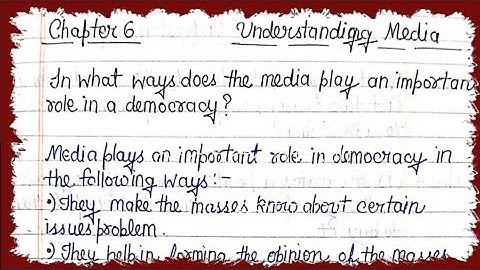 Chapter 6 Understanding Media
In what ways does the media play an importan
role in a democracy?
Media plays an important role in democracy in
the following ways:-
•) They make the masses know about certain
issues problem.
•) They help in forming the opinion of the masses